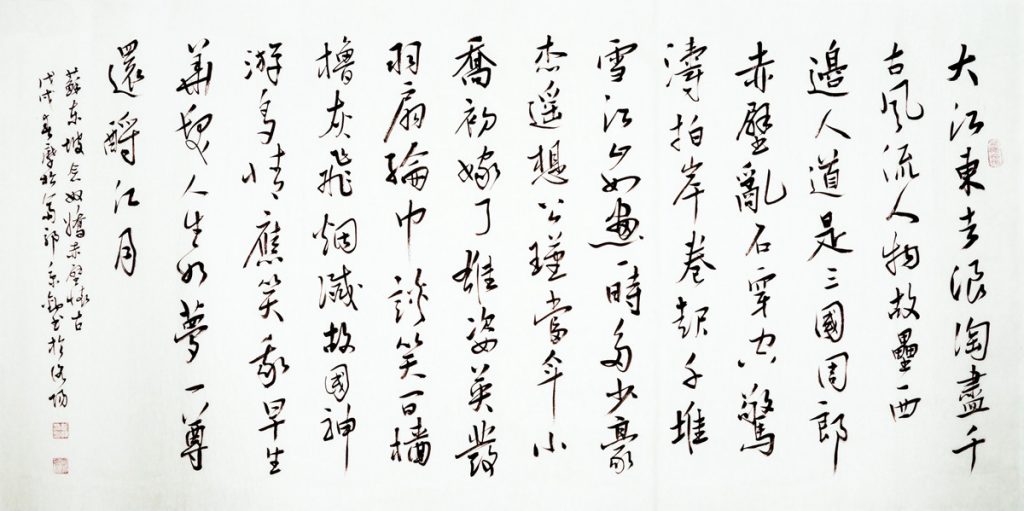 大江東去浪淘盡千
古風流人物故壘西
邊人道是三國周郎
赤壁亂石穿空驚
濤拍岸卷起千堆
雪江山如畫一時多少豪
杰遥想公瑾當年小
喬初嫁了雄姿英發
羽扇綸巾談笑間檣
櫓灰飛烟滅故國神
游多情應笑我早生
華髮人生如夢一尊
還酹江月
蘇东坡念奴嬌赤壁懷古
戊戌春 於洛陽